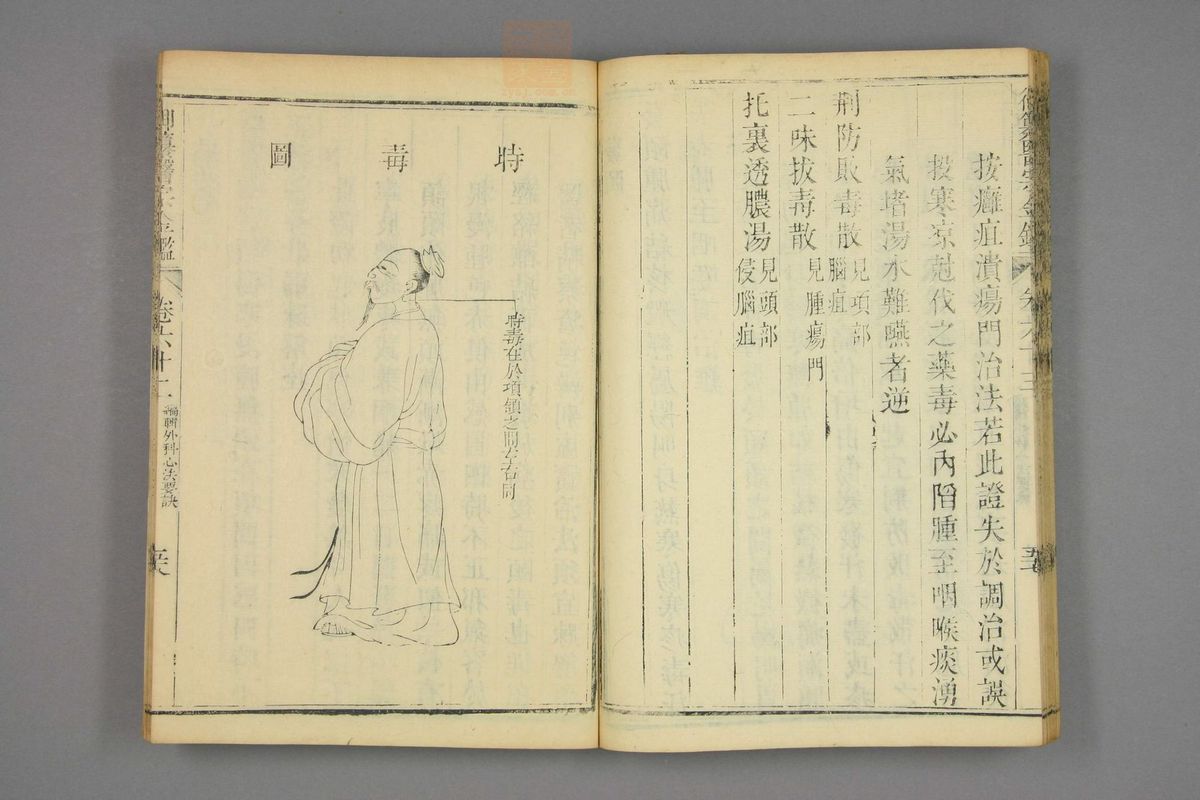 按癰疽潰瘍門治法若此證失於調治或誤
投寒凉尅伐之藥毒必內陷腫至咽喉痰湧
氣堵湯水難嚥者逆
荆防敗毒散見項部腦疽
二味拔毒散見腫瘍門
托裏透膿湯見頭部侵腦疽
時毒圖
時毒在於項頷之間左右同
卷六十
編輯外科心法要訣